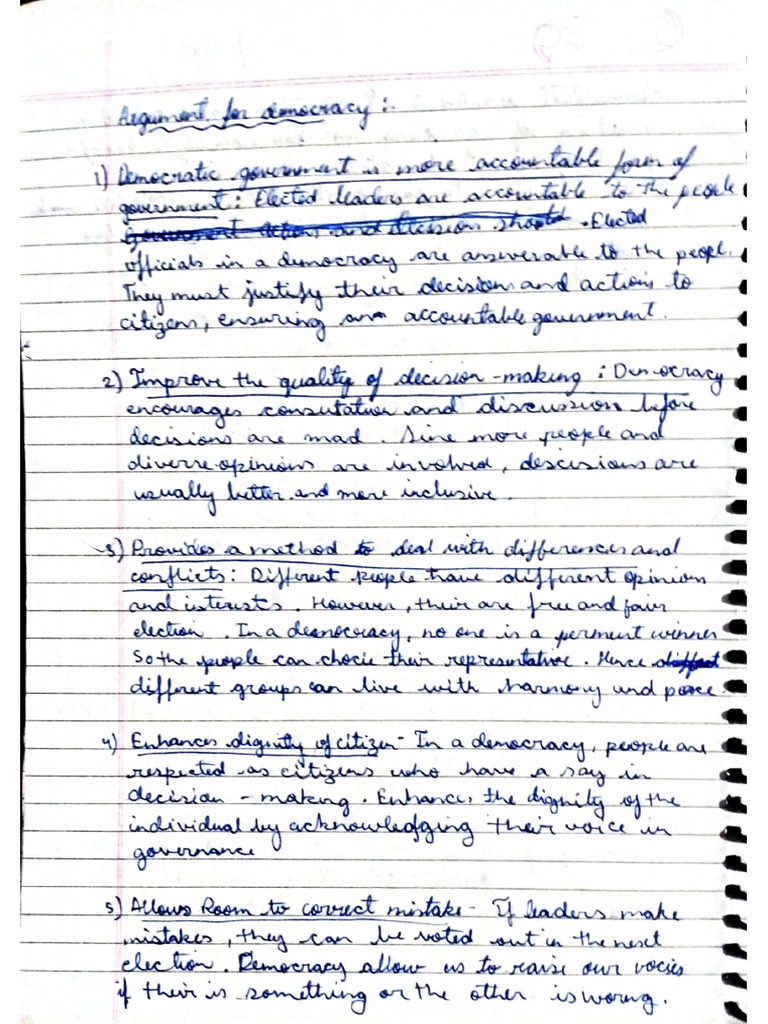 Argument for democracy :-
1) Democratic government is more accountable form of
government : Elected leaders are accountable to the people
Government actions and decision should . Elected
officials in a democracy are answerable to the peopl.
They must justify their decision and actions to
citizens, ensuring an accountable government.
2) Improve the quality of decision - making : Democracy
encourages consutation and discussion before
decisions are mad . Sine more people and
diverse opinions are involved, descisions are
usually better and more inclusive .
3) Provides a method to deal with differences and
conflicts : Different people have different opinion
and interests . However, their are free and fair
election . In a democracy, no one is a perment winner
So the people can chocie their representative . Hence
different groups can live with harmony and peace
4) Enhances dignity of citizen - In a democracy, people are
respected as citizens who have a say in
decision - making . Enhances the dignity of the
individual by acknowledging their voice in
governance
5) Allows Room to correct mistake - If leaders make
mistakes, they can be voted out in the next
election . Democracy allow us to raise our vocies
if their is something or the other is worng .